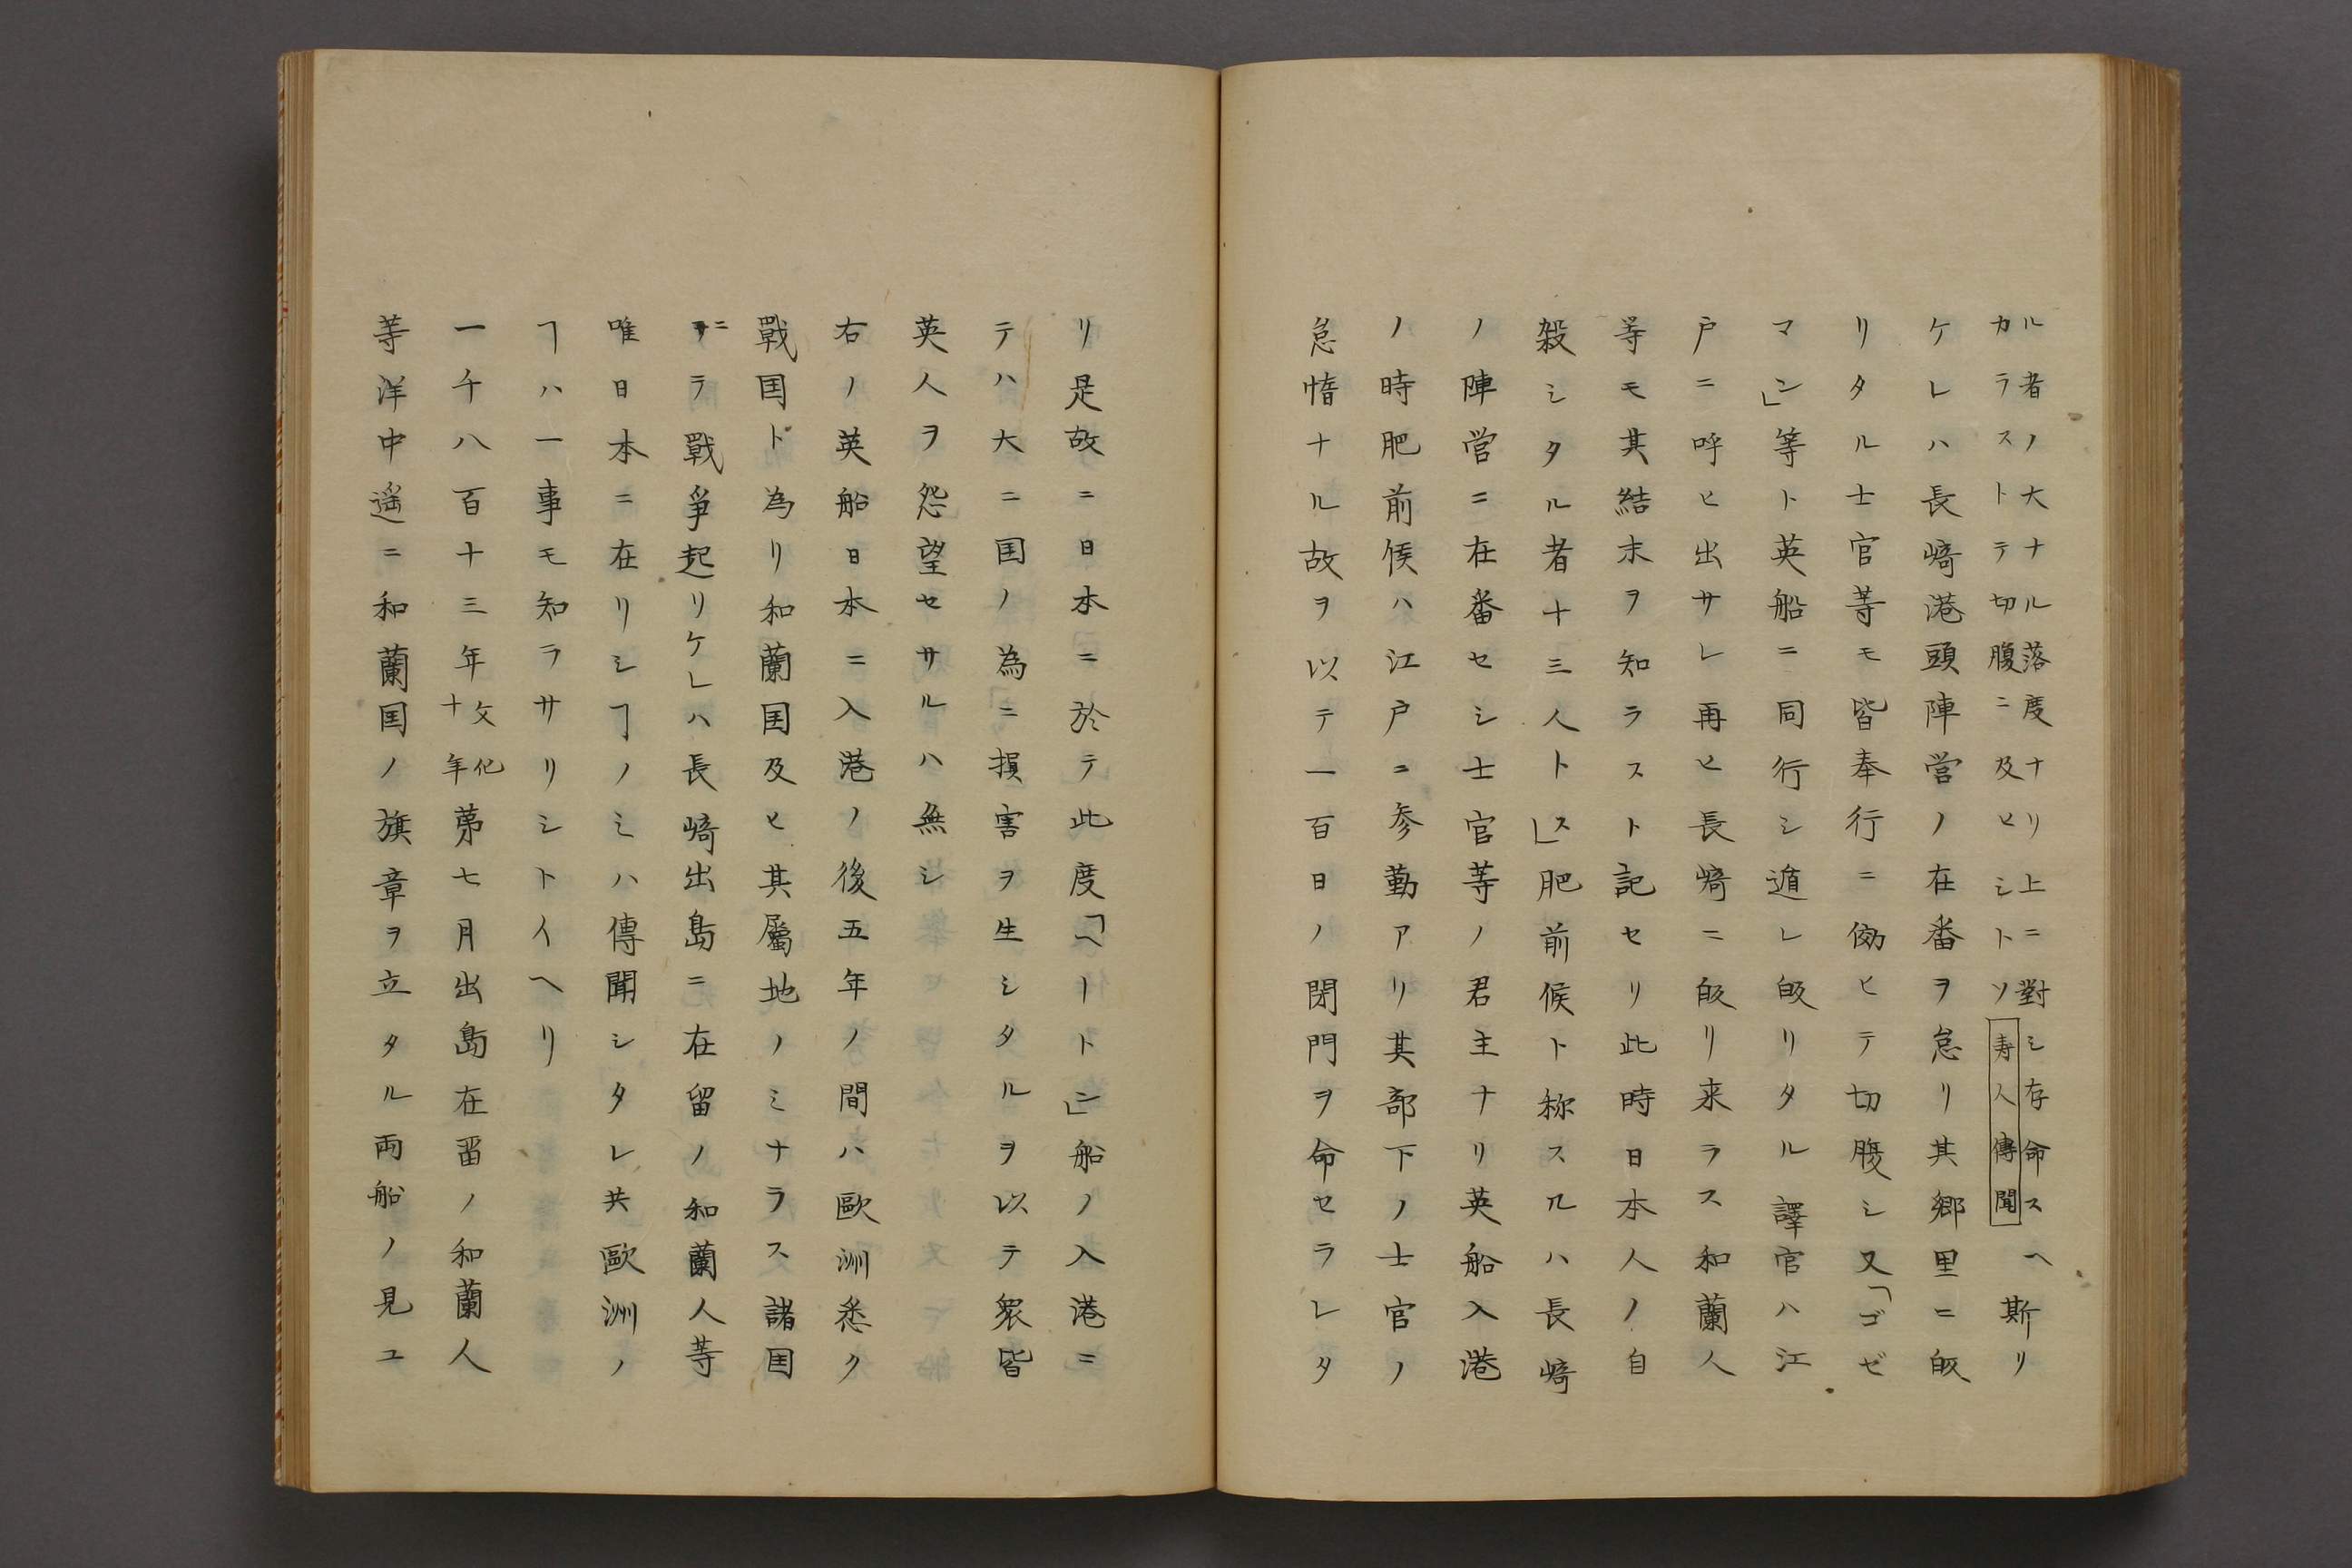 ル者ノ大ナル落度ナリ上ニ對シ存命スヘ
カラストテ切腹ニ及ヒシトソ壽人傳聞
斯リ
ケレハ長崎港頭陣営ノ在番ヲ怠リ其郷里ニ皈
リタル士官等モ皆奉行ニ傚ヒテ切腹シ又「ゴゼ
マン」等ト英船ニ同行シ遁レ皈リタル譯官ハ江
戸ニ呼ヒ出サレ再ヒ長崎ニ皈リ来ラス和蘭人
等モ其結末ヲ知ラスト記セリ此時日本人ノ自
殺シタル者十三人トス」肥前候ト称スルハ長崎
ノ陣営ニ在番セシ士官等ノ君主ナリ英船入港
ノ時肥前侯ハ江戸ニ参勤アリ其部下ノ士官ノ
怠惰ナル故ヲ以テ一百日ノ閉門ヲ命セラレタ
リ是故ニ日本ニ於テ此度「ヘートン」船ノ入港ニ
テハ大ニ国ノ為ニ損害ヲ生シタルヲ以テ衆皆
英人ヲ怨望セサルハ無シ
右ノ英船日本ニ入港ノ後五年ノ間ハ歐洲悉ク
戰国ト為リ和蘭国及ヒ其屬地ノミナラス諸国
ニテ戰爭起リケレハ長崎出島ニ在留ノ和蘭人等
唯日本ニ在リシヿノミハ傳聞シタレ共歐洲ノ
ヿハ一事モ知ラサリシトイヘリ
一千八百十三年文化十年第七月出島在畱ノ和蘭人
等洋中遥ニ和蘭国ノ旗章ヲ立タル両船ノ見ユ